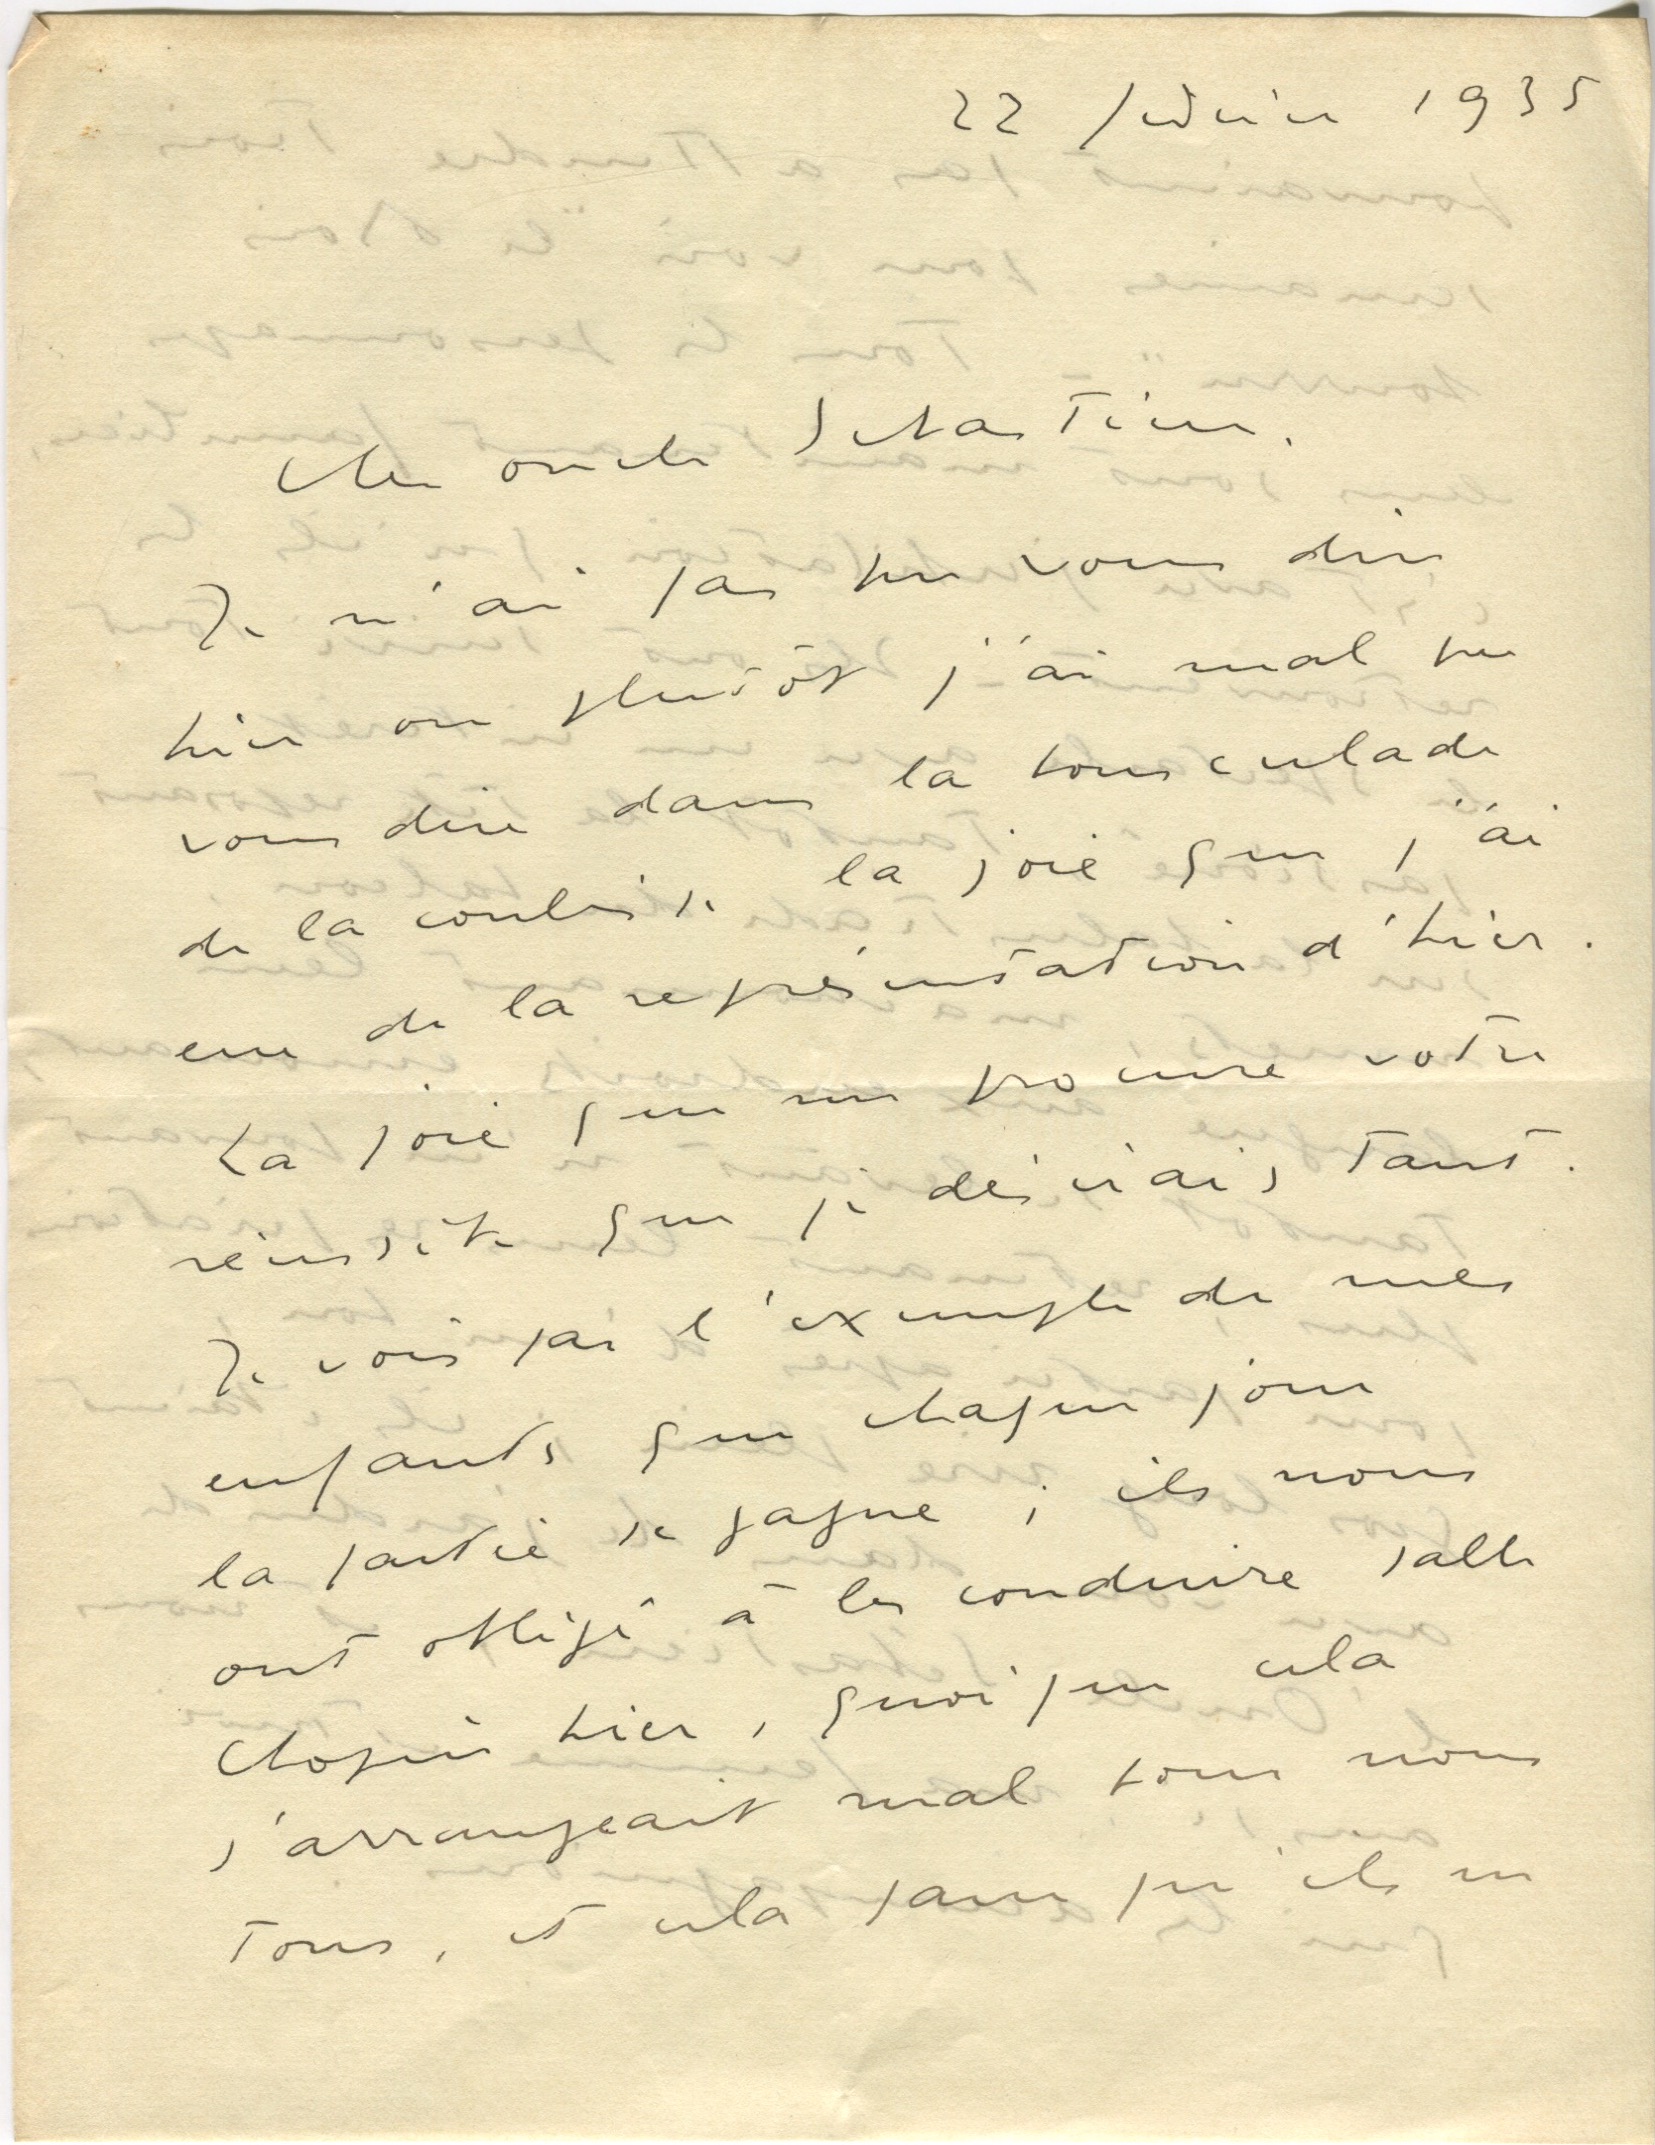 22 février 1935
Cher oncle Sébastien.
Je n'ai pas pu vous dire
hier ou plutôt j'ai mal pu
vous dire dans la bousculade
de la coulisse la joie que j'ai
eue de la représentation d'hier.
La joie que me procure votre
réussite que je désirais tant.
Je vois par l'exemple de mes
enfants que chaque jour
la partie se gagne ; ils nous
ont obligé à les conduire salle
Chopin hier, quoique cela
s'arrangeait mal pour nous
tous, et cela parce qu'ils ne